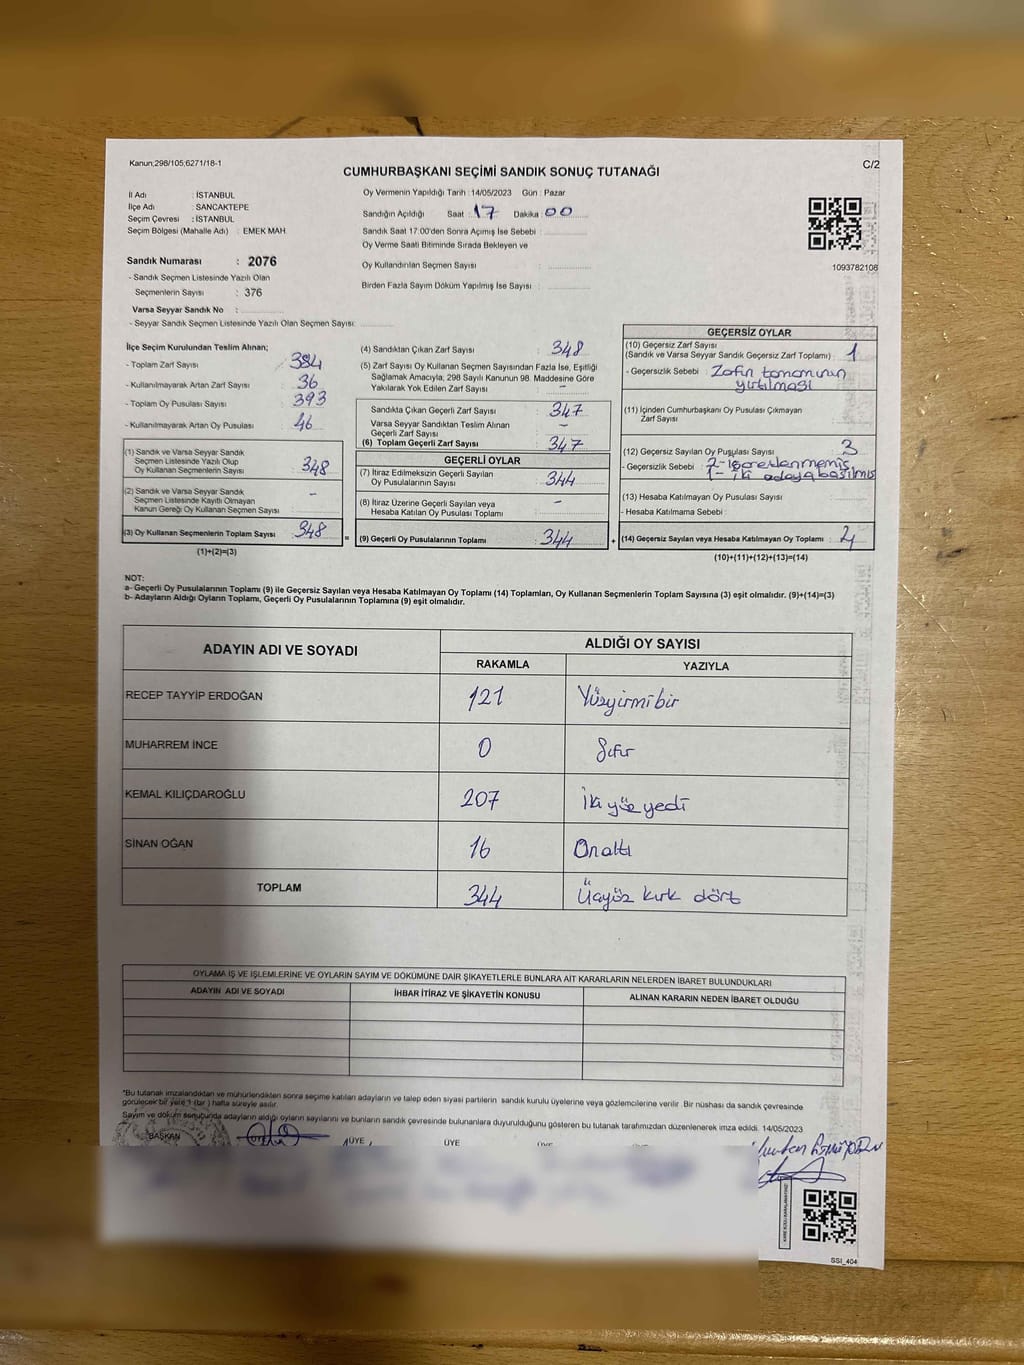 Kanun,298/105;6271/18-1
C/2
CUMHURBAŞKANI SEÇİMİ SANDIK SONUÇ TUTANAĞI
İl Adı : İSTANBUL
İlçe Adı : SANCAKTEPE
Seçim Çevresi : İSTANBUL
Seçim Bölgesi (Mahalle Adı) : EMEK MAH
Oy Vermenin Yapıldığı Tarih : 14/05/2023 Gün : Pazar
Sandığın Açıldığı Saat : 17 Dakika : 00
Sandık Saat 17:00'den Sonra Açımış İse Sebebi :
Oy Verme Saati Bitiminde Sırada Bekleyen ve
Oy Kullandırılan Seçmen Sayısı :
Birden Fazla Sayım Döküm Yapılmış İse Sayısı :
1093782106
Sandık Numarası : 2076
- Sandık Seçmen Listesinde Yazılı Olan
Seçmenlerin Sayısı : 376
Varsa Seyyar Sandık No :
- Seyyar Sandık Seçmen Listesinde Yazılı Olan Seçmen Sayısı:
İlçe Seçim Kurulundan Teslim Alınan;
- Toplam Zarf Sayısı : 384
- Kullanılmayarak Artan Zarf Sayısı : 36
- Toplam Oy Pusulası Sayısı : 393
- Kullanılmayarak Artan Oy Pusulası : 46
(1) Sandık ve Varsa Seyyar Sandık
Seçmen Listesinde Yazılı Olup
Oy Kullanan Seçmenlerin Sayısı : 348
(2) Sandık ve Varsa Seyyar Sandık
Seçmen Listesinde Kayıtlı Olmayan
Kanun Gereği Oy Kullanan Seçmen Sayısı : -
(3) Oy Kullanan Seçmenlerin Toplam Sayısı : 348
(1)+(2)=(3)
(4) Sandıktan Çıkan Zarf Sayısı : 348
(5) Zarf Sayısı Oy Kullanan Seçmen Sayısından Fazla İse, Eşitliği
Sağlamak Amacıyla, 298 Sayılı Kanunun 98. Maddesine Göre
Yakılarak Yok Edilen Zarf Sayısı : -
Sandıkta Çıkan Geçerli Zarf Sayısı : 347
Varsa Seyyar Sandıktan Teslim Alınan
Geçerli Zarf Sayısı : -
(6) Toplam Geçerli Zarf Sayısı : 347
GEÇERLİ OYLAR
(7) İtiraz Edilmeksizin Geçerli Sayılan
Oy Pusulalarının Sayısı : 344
(8) İtiraz Üzerine Geçerli Sayılan veya
Hesaba Katılan Oy Pusulası Toplamı : -
= (9) Geçerli Oy Pusulalarının Toplamı : 344 +
GEÇERSİZ OYLAR
(10) Geçersiz Zarf Sayısı
(Sandık ve Varsa Seyyar Sandık Geçersiz Zarf Toplamı) : 1
- Geçersizlik Sebebi : Zarfın tamamının
yırtılması
(11) İçinden Cumhurbaşkanı Oy Pusulası Çıkmayan
Zarf Sayısı :
(12) Geçersiz Sayılan Oy Pusulası Sayısı : 3
- Geçersizlik Sebebi : 2- işaretlenmemiş
1- iki adaya basılmış
(13) Hesaba Katılmayan Oy Pusulası Sayısı :
- Hesaba Katılmama Sebebi :
(14) Geçersiz Sayılan veya Hesaba Katılmayan Oy Toplamı : 4
(10)+(11)+(12)+(13)=(14)
NOT:
a- Geçerli Oy Pusulalarının Toplamı (9) ile Geçersiz Sayılan veya Hesaba Katılmayan Oy Toplamı (14) Toplamları, Oy Kullanan Seçmenlerin Toplam Sayısına (3) eşit olmalıdır. (9)+(14)=(3)
b- Adayların Aldığı Oyların Toplamı, Geçerli Oy Pusulalarının Toplamına (9) eşit olmalıdır.
ADAYIN ADI VE SOYADI ALDIĞI OY SAYISI
RAKAMLA YAZIYLA
RECEP TAYYİP ERDOĞAN 121 Yüzyirmibir
MUHARREM İNCE 0 Sıfır
KEMAL KILIÇDAROĞLU 207 İki yüz yedi
SİNAN OĞAN 16 Onaltı
TOPLAM 344 Üçyüz kırk dört
OYLAMA İŞ VE İŞLEMLERİNE VE OYLARIN SAYIM VE DÖKÜMÜNE DAİR ŞİKAYETLERLE BUNLARA AİT KARARLARIN NELERDEN İBARET BULUNDUKLARI
ADAYIN ADI VE SOYADI İHBAR İTİRAZ VE ŞİKAYETİN KONUSU ALINAN KARARIN NEDEN İBARET OLDUĞU
*Bu tutanak imzalandıktan ve mühürlendikten sonra seçime katılan adayların ve talep eden siyasi partilerin sandık kurulu üyelerine veya gözlemcilerine verilir. Bir nüshası da sandık çevresinde
görülecek bir yere 1 (bir) hafta süreyle asılır.
Sayım ve döküm sonucunda adayların aldığı oyların sayılarını ve bunların sandık çevresinde bulunanlara duyurulduğunu gösteren bu tutanak tarafımızdan düzenlenerek imza edildi. 14/05/2023
BAŞKAN ÜYE ÜYE
SSI_404